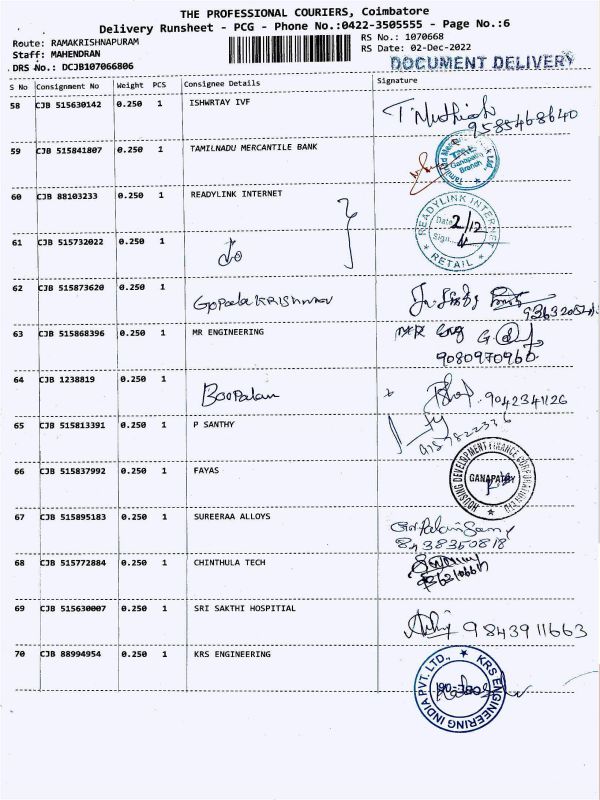 THE PROFESSIONAL COURIERS, Coimbatore
Delivery Runsheet - PCG - Phone No.:0422-3505555 - Page No.:6
Route: RAMAKRISHNAPURAM
RS No.: 1070668
Staff: MAHENDRAN
RS Date: 02-Dec-2022
DRS No.: DCJB107066806
DOCUMENT DELIVERY
S No Consignment No Weight PCS Consignee Details Signature
58 CJB 515630142 0.250 1 ISHWRTAY IVF
9585468640
59 CJB 515841807 0.250 1 TAMILNADU MERCANTILE BANK
Ganapathy
Branch
60 CJB 88103233 0.250 1 READYLINK INTERNET
READYLINK INTERNET
Date 2/12
Sign.
RETAIL
61 CJB 515732022 0.250 1 do
62 CJB 515873620 0.250 1 Gopala KRISHNAN
63 CJB 515868396 0.250 1 MR ENGINEERING
9080970960
64 CJB 1238819 0.250 1 Boopalan
9042341126
65 CJB 515813391 0.250 1 P SANTHY
66 CJB 515837992 0.250 1 FAYAS
HOUSING DEVELOPMENT FINANCE CORPORATION LTD
GANAPATHY
67 CJB 515895183 0.250 1 SUREERAA ALLOYS
8438350818
68 CJB 515772884 0.250 1 CHINTHULA TECH
69 CJB 515630007 0.250 1 SRI SAKTHI HOSPITIAL
9843911663
70 CJB 88994954 0.250 1 KRS ENGINEERING
KRS ENGINEERING INDIA PVT. LTD.,